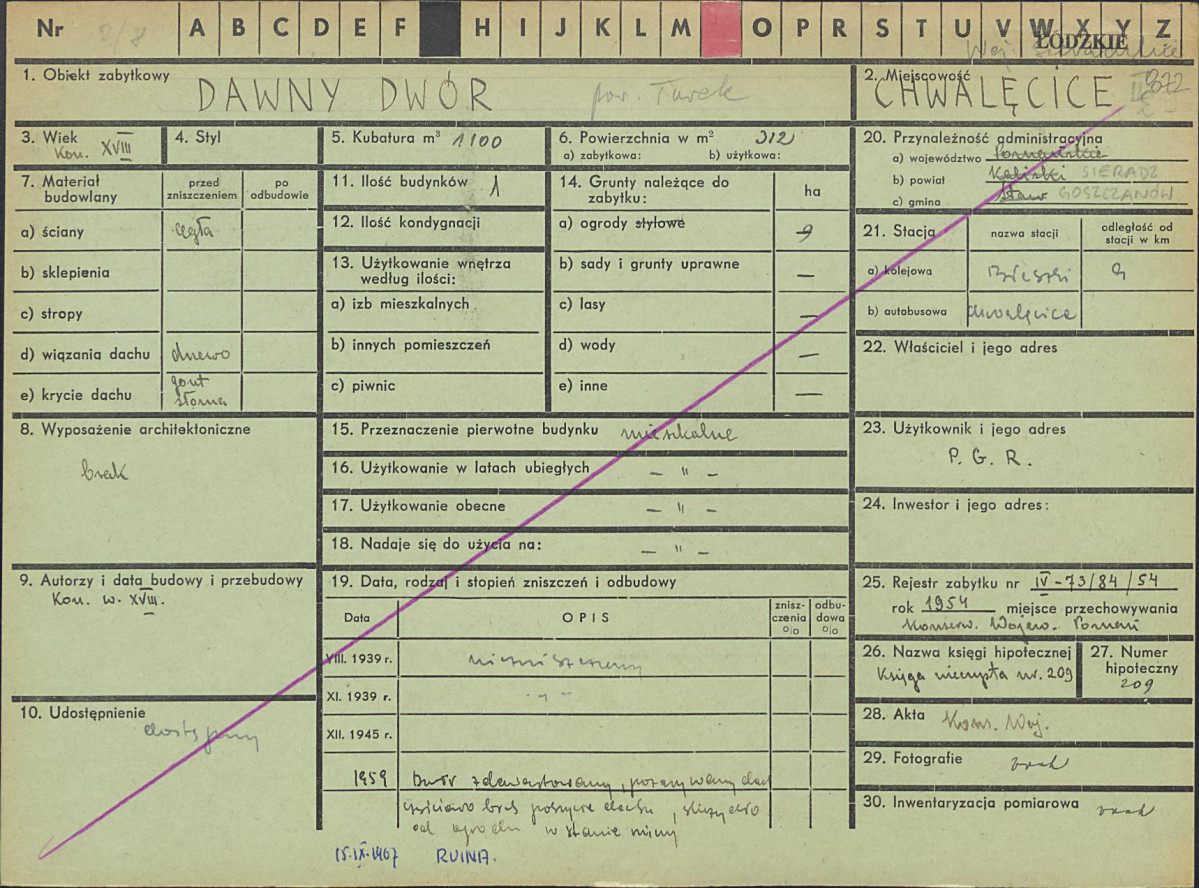 Nr 2/8 A B C D E F H I J K L M O P R S T U V W X Y Z
ŁÓDZKIE
1. Obiekt zabytkowy
DAWNY DWÓR pow. Turek
2. Miejscowość
CHWALĘCICE
3. Wiek
Kon. XVIII
4. Styl
5. Kubatura m³ 1100
6. Powierzchnia w m² 312
a) zabytkowa: b) użytkowa:
7. Materiał budowlany
przed zniszczeniem
po odbudowie
a) ściany cegła
b) sklepienia
c) stropy
d) wiązania dachu drewo
e) krycie dachu gont słoma
8. Wyposażenie architektoniczne
brak
9. Autorzy i data budowy i przebudowy
Kon. w. XVIII.
10. Udostępnienie
dostępny
11. Ilość budynków 1
12. Ilość kondygnacji
13. Użytkowanie wnętrza według ilości:
a) izb mieszkalnych
b) innych pomieszczeń
c) piwnic
14. Grunty należące do zabytku:
ha
a) ogrody stylowe 9
b) sady i grunty uprawne —
c) lasy —
d) wody —
e) inne —
15. Przeznaczenie pierwotne budynku mieszkalne
16. Użytkowanie w latach ubiegłych — " —
17. Użytkowanie obecne — " —
18. Nadaje się do użycia na: — " —
19. Data, rodzaj i stopień zniszczeń i odbudowy
Data
OPIS
znisz-
czenia
%
odbu-
dowa
%
VIII. 1939 r. niezniszczony
XI. 1939 r. - " -
XII. 1945 r.
1959 Dwór zdewastowany, pozarywany dach
częściowo brak poszycia dachu,
od ogrodu w stanie ruiny
15.IX.1967 RUINA.
20. Przynależność administracyjna
a) województwo Poznańskie
b) powiat Kaliski SIERADZ
c) gmina Staw GOSZCZANÓW
21. Stacja
nazwa stacji
odległość od
stacji w km
a) kolejowa 9
b) autobusowa Chwalęcice
22. Właściciel i jego adres
23. Użytkownik i jego adres
P. G. R.
24. Inwestor i jego adres:
25. Rejestr zabytku nr IV-73/84/54
rok 1954 miejsce przechowywania
Konserw. Wojew. Poznań
26. Nazwa księgi hipotecznej
Księga wieczysta nr. 209
27. Numer hipoteczny
209
28. Akta Kons. Woj.
29. Fotografie brak
30. Inwentaryzacja pomiarowa brak